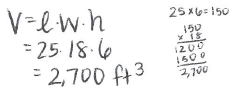 V = l · w · h
= 25 · 18 · 6
= 2,700 ft³
25 × 6 = 150
150
× 18
1200
1500
2,700